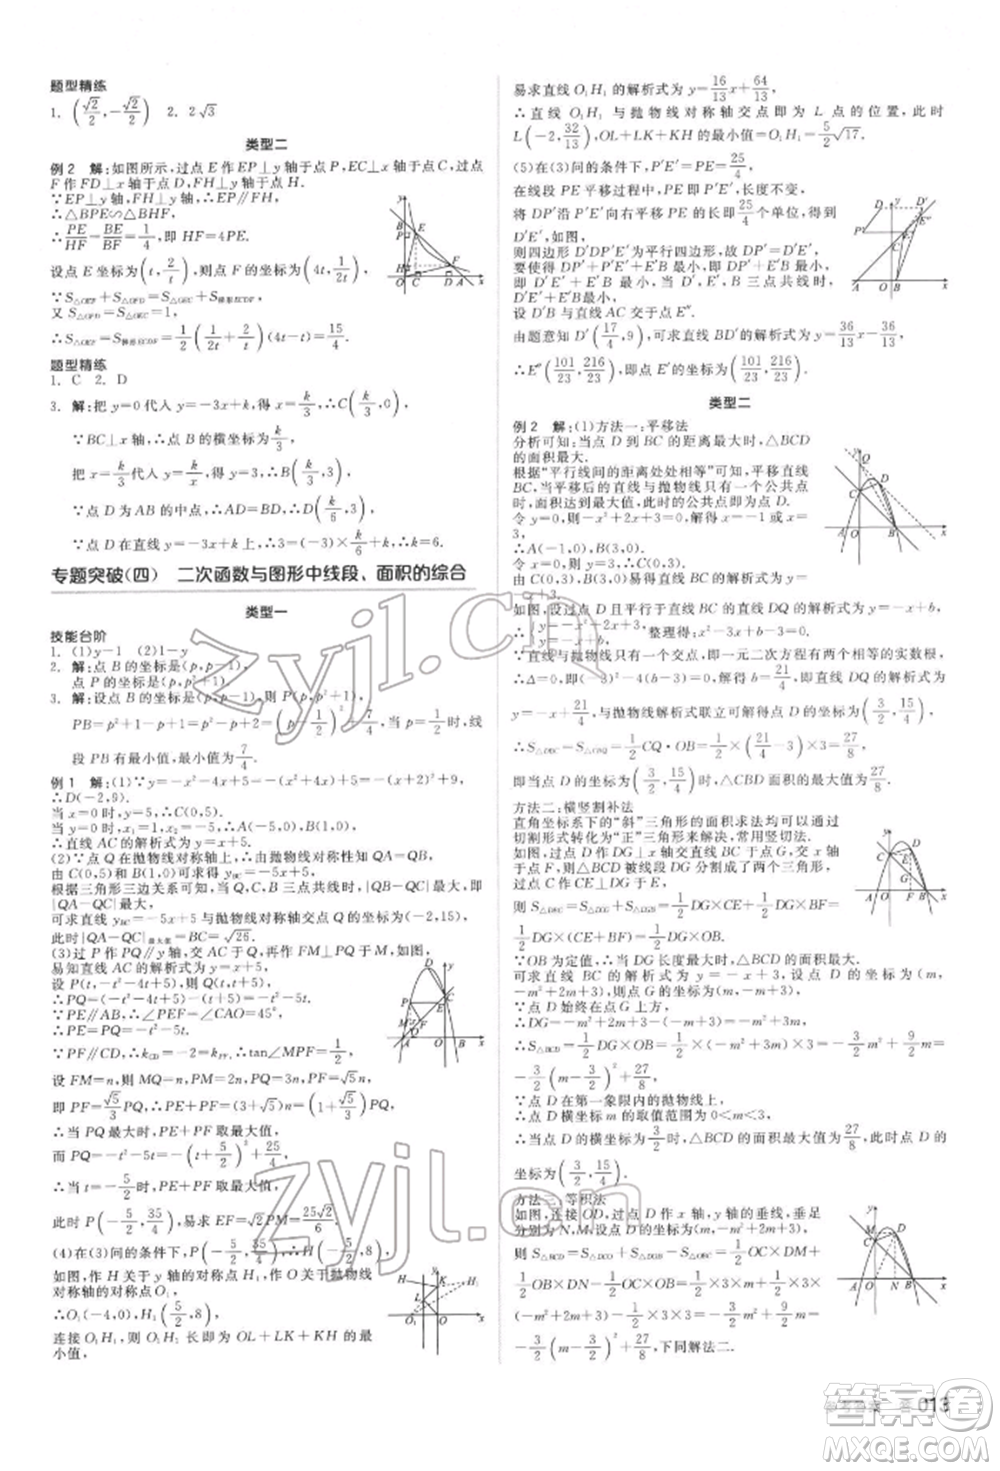 题型精练
1. (√2/2, -√2/2)  2. 2√3
类型二
例2 解:如图所示,过点E作EP⊥y轴于点P,EC⊥x轴于点C,过点
F作FD⊥x轴于点D,FH⊥y轴于点H.
∵EP⊥y轴,FH⊥y轴,∴EP∥FH,
∴△BPE∽△BHF,
∴PE/HF=BE/BF=1/4,即HF=4PE.
设点E坐标为(t, 2/t),则点F的坐标为(4t, 1/2t),
∵S△OEF+S△OFD=S△OEC+S梯形ECDF,
又S△OFD=S△OEC=1,
∴S△OEF=S梯形ECDF=1/2(1/2t+2/t)(4t-t)=15/4.
题型精练
1. C  2. D
3. 解:把y=0代入y=-3x+k,得x=k/3,∴C(k/3,0).
∵BC⊥x轴,∴点B的横坐标为k/3,
把x=k/3代入y=k/x,得y=3,∴B(k/3,3),
∵点D为AB的中点,∴AD=BD,∴D(k/6,3),
∵点D在直线y=-3x+k上,∴3=-3×k/6+k,∴k=6.
专题突破(四) 二次函数与图形中线段、面积的综合
类型一
技能台阶
1. (1)y-1 (2)1-y
2. 解:点B的坐标是(p,p-1),
点P的坐标是(p,p²+1).
3. 解:设点B的坐标是(p,p-1),则P(p,p²+1),
PB=p²+1-p+1=p²-p+2=(p-1/2)²+7/4,当p=1/2时,线
段PB有最小值,最小值为7/4.
例1 解:(1)∵y=-x²-4x+5=-(x+2)²+9,
∴D(-2,9).
当x=0时,y=5,∴C(0,5).
当y=0时,x₁=1,x₂=-5,∴A(-5,0),
∴直线AC的解析式为y=x+5.
(2)∵点Q在抛物线对称轴上,∴由抛物线对称性知QA=QB.
由C(0,5)和B(1,0)可得yBC=-5x+5,
根据三角形三边关系可知,当Q、C、B三点共线时|QB-QC|最大,即|QA-QC|最大,
可求直线yBC=-5x+5与抛物线对称轴交点Q的坐标为(-2,15),
此时|QA-QC|最大值=BC=√26.
(3)过P作PQ∥y轴,交AC于Q,再作FM⊥PQ于M,
易知直线AC的解析式为y=x+5,
设P(t,-t²-4t+5),Q(t,t+5),
∴PQ=(-t²-4t+5)-(t+5)=-t²-5t.
∵PE∥AB,∴∠PEA=∠CAO=45°,
∵PF∥CD,∴kCD=kPF,∴tan∠MPF=1/2,
设FM=n,则MQ=n,PM=2n,PQ=3n,PF=√5n,
即PF+PQ=√5n+3n=(3+√5)n=(1+√5/3)PQ,
∴当PQ最大时,PF+PQ取最大值,
而PQ=-t²-5t=-(t+5/2)²+25/4,
∴当t=-5/2时,PQ取最大值,
此时P(-5/2,35/4),易求EF=√2PM=25√2/6.
(4)在(3)问的条件下,P(-5/2,35/4),
如图,作H关于y轴的对称点H₁,作O关于抛物线
对称轴的对称点O₁,
∴O₁(-4,0),H₁(5/2,8),
连接O₁H₁,则O₁H₁即为OL+LK+KH的最
小值,
易求直线O₁H₁的解析式为y=16/13x+64/13,
∴直线O₁H₁与抛物线对称轴交点即为L点的位置,此时
L(-2,32/13),∴OL+LK+KH的最小值=O₁H₁=5/2√17.
(5)在(3)问的条件下,P′E′=PE=25/4,
在线段PE平移过程中,P′E′长度不变,
将DP′沿P′E′向右平移PE的长即25/4个单位,得到
D′E′,如图,
则四边形D′DP′E′为平行四边形,故DP′=D′E′.
要使DP′+E′B最小,即D′E′+E′B最小,
∴D′、E′、B三点共线时,D′E′+E′B最小,
设D′B与直线AC交于点E″.
由题意知D′(17/4,9),可求直线BD′的解析式为y=36/13x-36/13,
∴E″(101/23,216/23),即点E′坐标为(101/23,216/23).
类型二
例2 解:(1)方法一:平移法
分析可知:当点D到BC的距离最大时,△BCD
的面积最大.
根据“平行线间的距离处处相等”可知,平移直线
BC,当平移后的直线与抛物线有一个公共点
时,面积达到最大,此时的公共点即为点D.
令y=0,则-x²+2x+3=0,解得x=-1或x=3,∴B(3,0).
令x=0,则y=3,
∴C(0,3).
由B(3,0),C(0,3)可求得直线BC的解析式为y=-x+3.
如图,设过点D平行于直线BC的直线DQ的解析式为y=-x+b,
∴{y=-x²+2x+3, y=-x+b,整理得:x²-3x+b-3=0.
∵直线与抛物线只有一个交点,即一元二次方程有两个相等的实数根,
∴Δ=0,即9-4(b-3)=0,解得b=21/4,∴直线DQ的解析式为
y=-x+21/4,与抛物线解析式联立可解得点D的坐标为(3/2,15/4),
∴S△DBC=S△QBC=1/2CQ·OB=1/2×(21/4-3)×3=27/8,
即当点D坐标为(3/2,15/4)时,△CBD面积的最大值为27/8.
方法二:横竖割补法
直角坐标系下的“斜”三角形的面积求法均可以通过
切割形式转化为“正”三角形来解决,常用竖切法.
如图,过点D作DF⊥x轴交BC于点G,交x轴于
点F,则△BCD被线段DG分割成了两个三角形,
过点C作CE⊥DG于点E,
则S△DBC=S△DCG+S△DBG=1/2DG×CE+
1/2DG×BF=1/2DG×OB.
∵OB为定值,∴当DG长度最大时,△BCD面积最大.
可求直线BC的解析式为y=-x+3,设点D的坐标为(m,
-m²+2m+3),则点G的坐标为(m,-m+3),
∵点D始终在点G的上方,
∴DG=-m²+2m+3-(-m+3)=-m²+3m,
∴S△BCD=1/2DG×OB=1/2×(-m²+3m)×3=-3/2m²+9/2m=
-3/2(m-3/2)²+27/8,
∵点D在第一象限内的抛物线上,
∴点D横坐标m的取值范围为0<m<3,
∴当点D的横坐标为3/2时,△BCD的面积的最大值为27/8,此时点D的
坐标为(3/2,15/4).
方法三:等积法
如图,连接OD,过点D作x轴,y轴的垂线,垂足
分别为N,M,设点D的坐标为(m,-m²+2m+3),
则S△BCD=S△OBD+S△OCD-S△OBC=1/2OC×DM+
1/2OB×DN-1/2OB×OC=1/2×3×m+1/2×3×
(-m²+2m+3)-1/2×3×3=-3/2m²+9/2m=
-3/2(m-3/2)²+27/8,下同解法二.
参考答案 答 013
zyjl.cn
zyjl.cn
答案圈
MXQE.COM